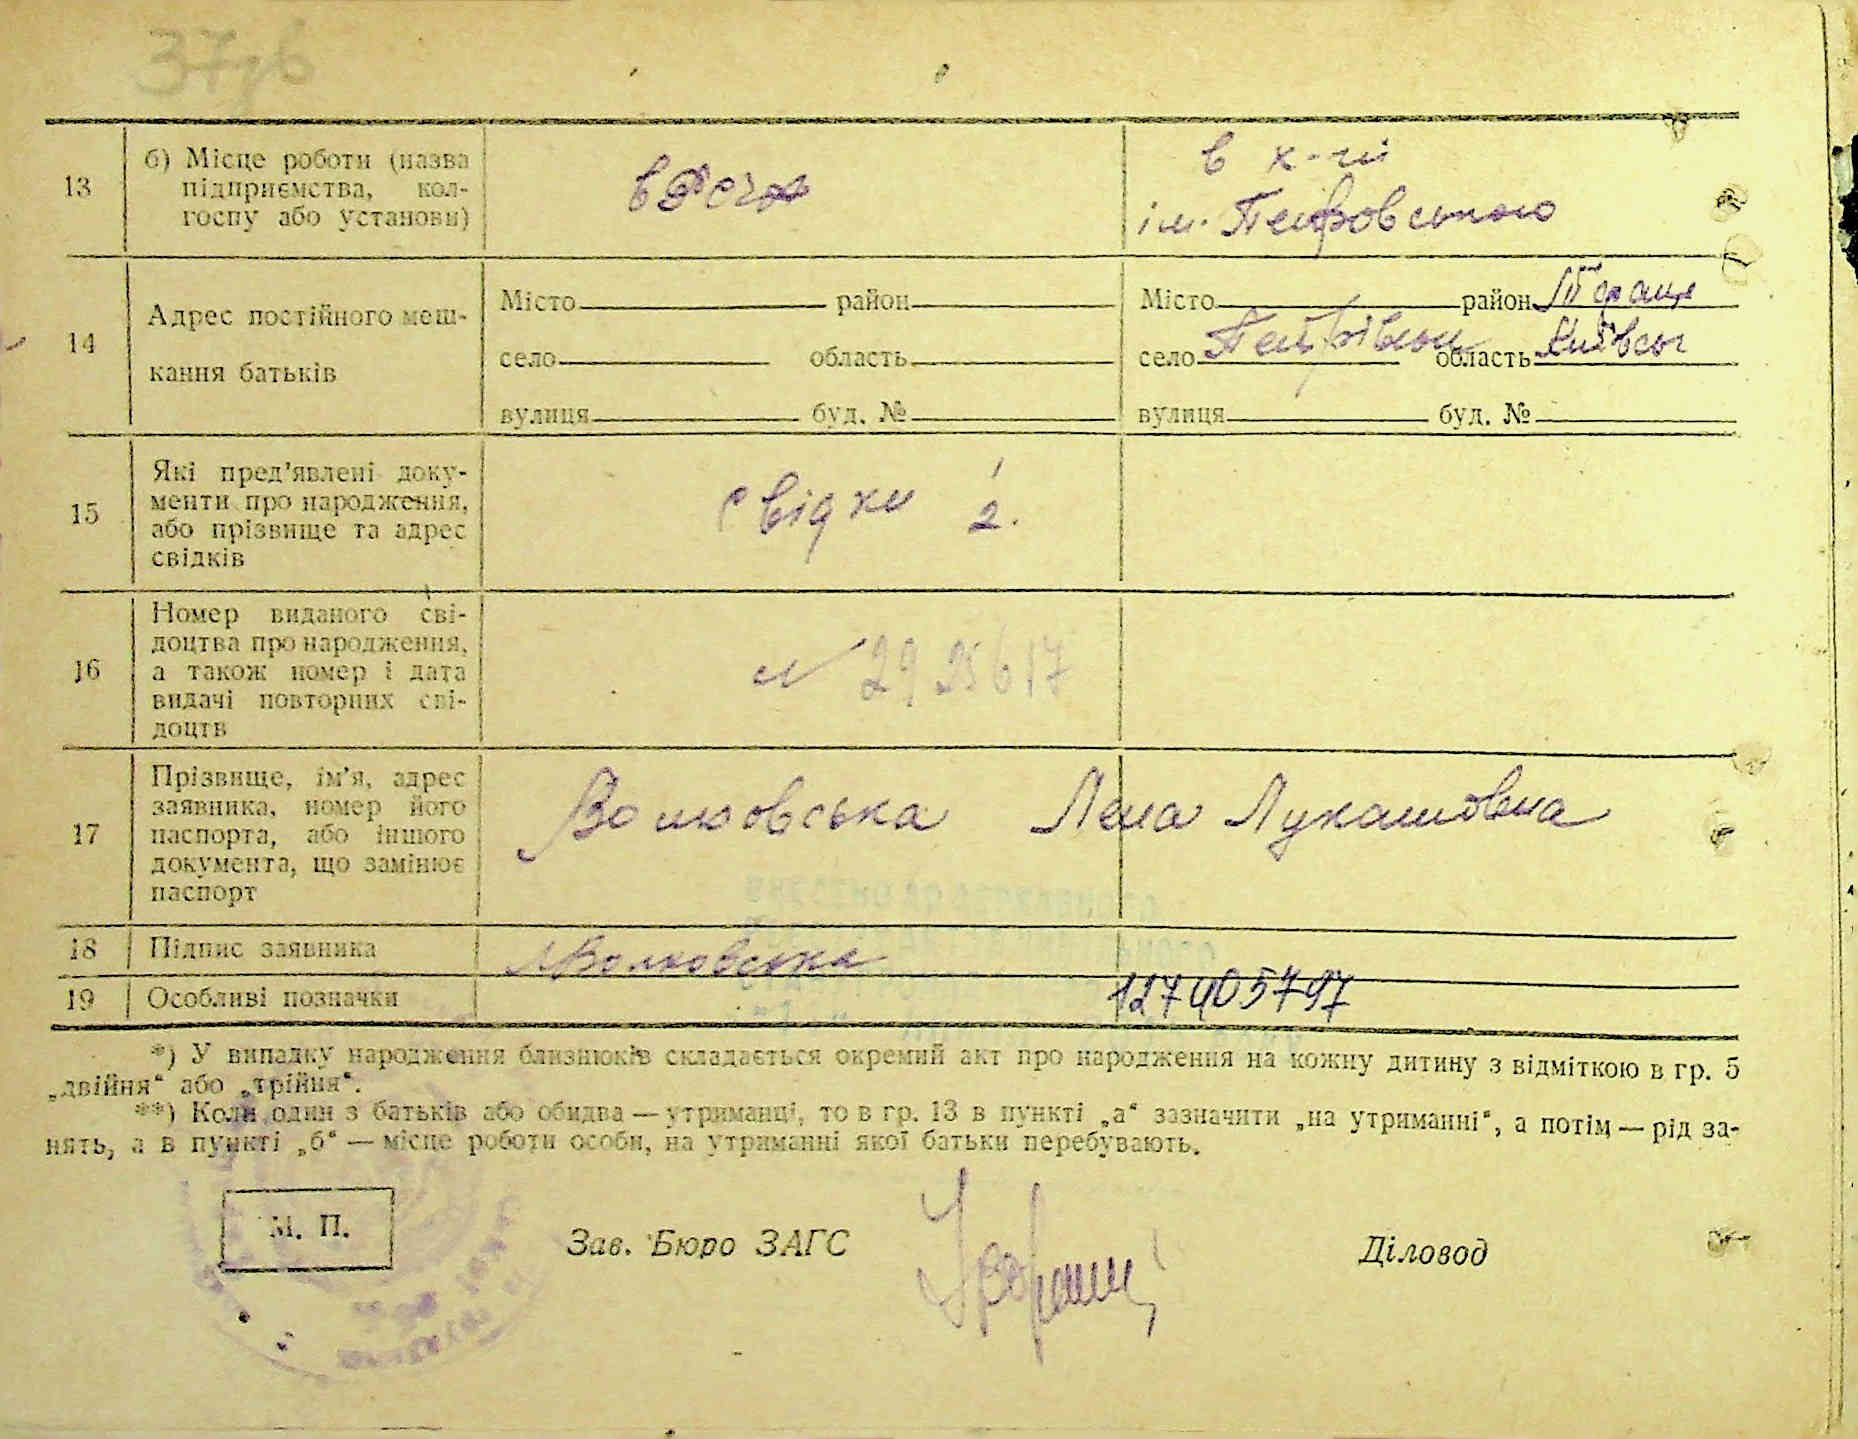 37зв
13
б) Місце роботи (назва
підприємства, кол-
госпу або установи)
в к-пі
ім. Петровського
14
Адрес постійного меш-
кання батьків
Місто район
село область
вулиця буд. №
Місто район
село Петрівці область Київськ
вулиця буд. №
15
Які пред'явлені доку-
менти про народження,
або прізвище та адрес
свідків
свідки 2.
16
Номер виданого сві-
доцтва про народження,
а також номер і дата
видачі повторних сві-
доцтв
№ 2925617
17
Прізвище, ім'я, адрес
заявника, номер його
паспорта, або іншого
документа, що замінює
паспорт
Волковська Лена Лукашовна
18
Підпис заявника
Волковська
19
Особливі позначки
127405797
*) У випадку народження близнюків складається окремий акт про народження на кожну дитину з відміткою в гр. 5
„двійня“ або „трійня“.
**) Коли один з батьків або обидва — утриманці, то в гр. 13 в пункті „а“ зазначити „на утриманні“, а потім — рід за-
нять, а в пункті „б“ — місце роботи особи, на утриманні якої батьки перебувають.
М. П.
Зав. Бюро ЗАГС
Діловод